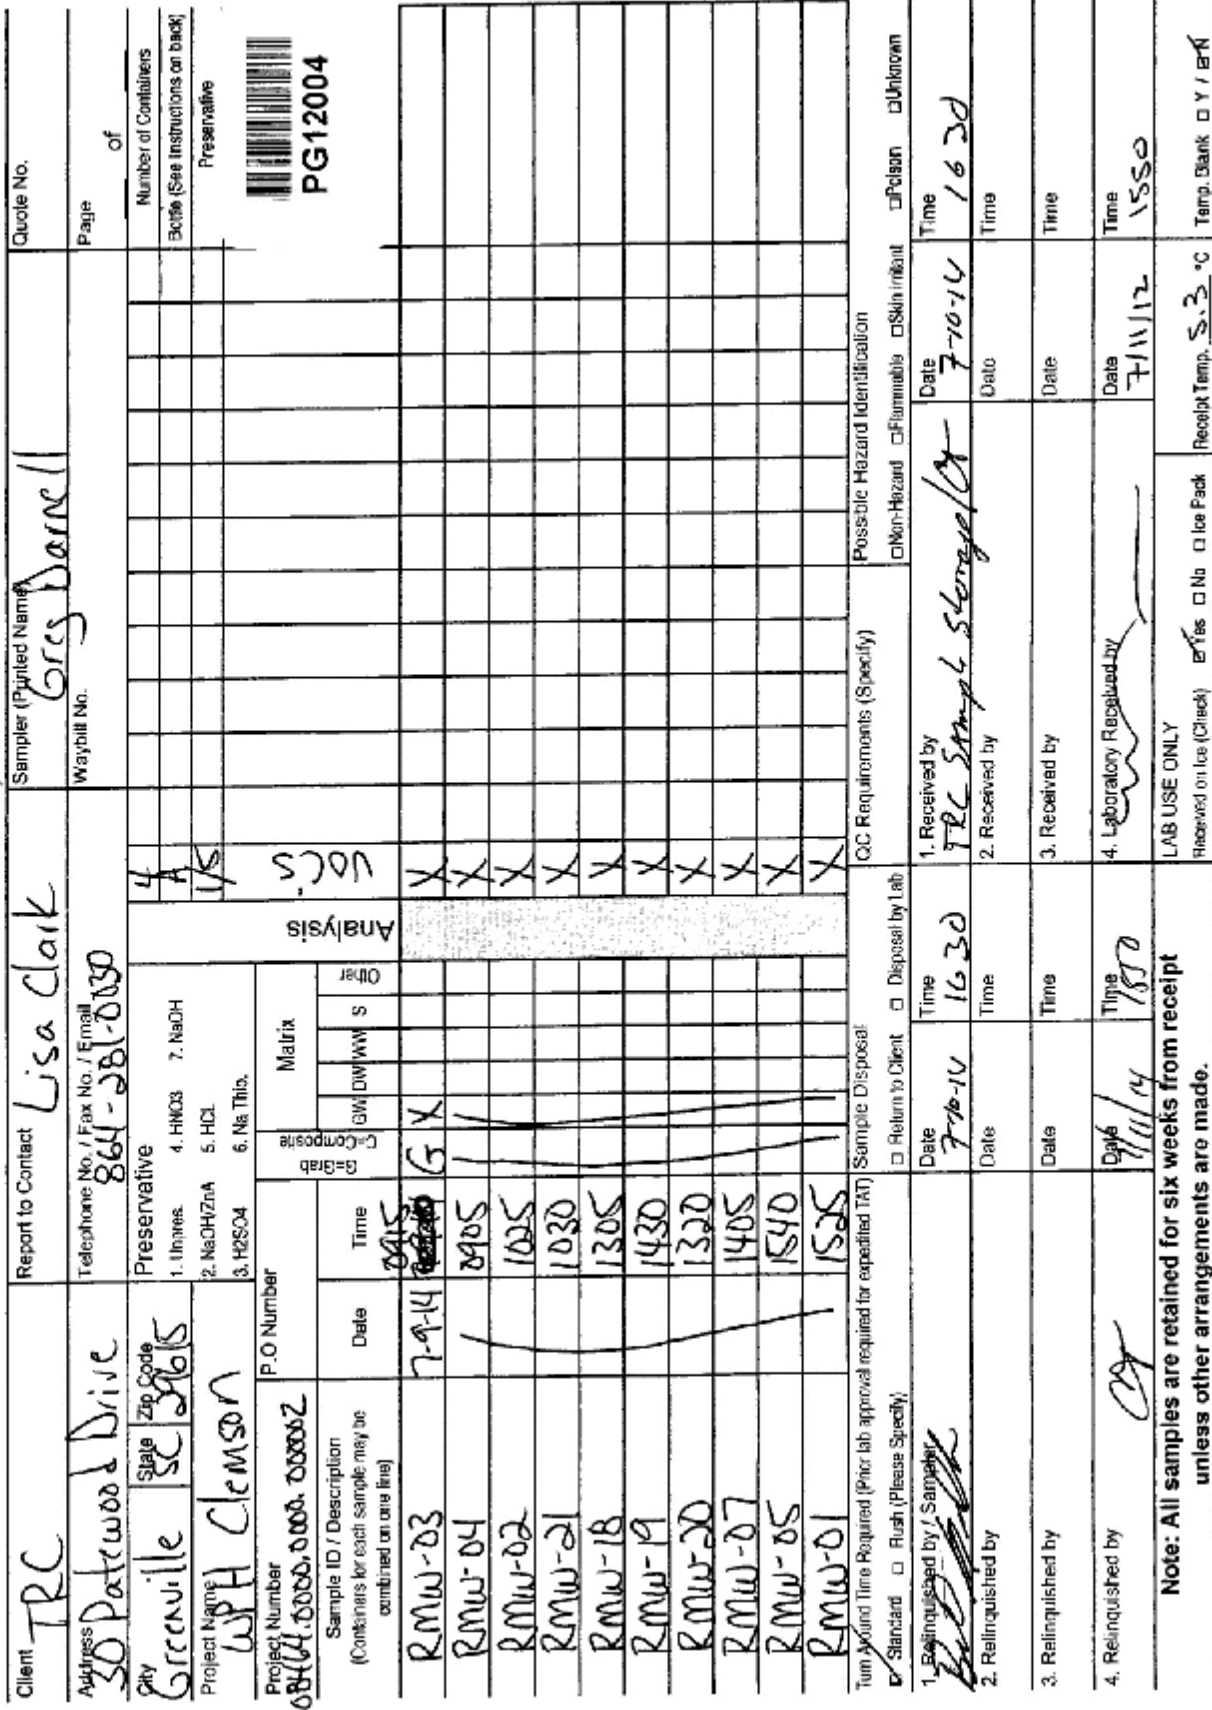 Client TRC
Report to Contact Lisa Clark
Sampler (Printed Name) Greg Darnell
Quote No.
Address 30 Patewood Drive
Telephone No. / Fax No. / Email 864-281-0030
Waybill No.
Page of
City Greenville State SC Zip Code 29615
Preservative
1. Unpres. 4. HNO3 7. NaOH
2. NaOH/ZnA 5. HCL
3. H2SO4 6. Na Thio.
4
1/5
Number of Containers
Bottle (See Instructions on back)
Preservative
Project Name WPH Clemson
Project Number
P.O Number
Matrix
Analysis
VOC's
PG12004
Sample ID / Description
(Containers for each sample may be
combined on one line)
Date
Time
G=Grab
C=Composite
GW DW WW S Other
RMW-03 7-9-14 0915 G X X
RMW-04 0905 X
RMW-02 1025 X
RMW-21 1030 X
RMW-18 1305 X
RMW-19 1430 X
RMW-20 1320 X
RMW-07 1405 X
RMW-05 1540 X
RMW-01 1525 X
Turn Around Time Required (Prior lab approval required for expedited TAT)
Standard Rush (Please Specify)
Sample Disposal
Return to Client Disposal by Lab
QC Requirements (Specify)
Possible Hazard Identification
Non-Hazard Flammable Skin Irritant Poison Unknown
1. Relinquished by / Sampler
Date 7-10-14
Time 1630
1. Received by TRC Sample Storage
Date 7-10-14
Time 1630
2. Relinquished by Date Time
2. Received by Date Time
3. Relinquished by Date Time
3. Received by Date Time
4. Relinquished by Date 7/11/14 Time 1550
4. Laboratory Received by Date 7/11/12 Time 1550
Note: All samples are retained for six weeks from receipt
unless other arrangements are made.
LAB USE ONLY
Received on Ice (Check) Yes No Ice Pack
Receipt Temp. 5.3 °C
Temp. Blank Y / N